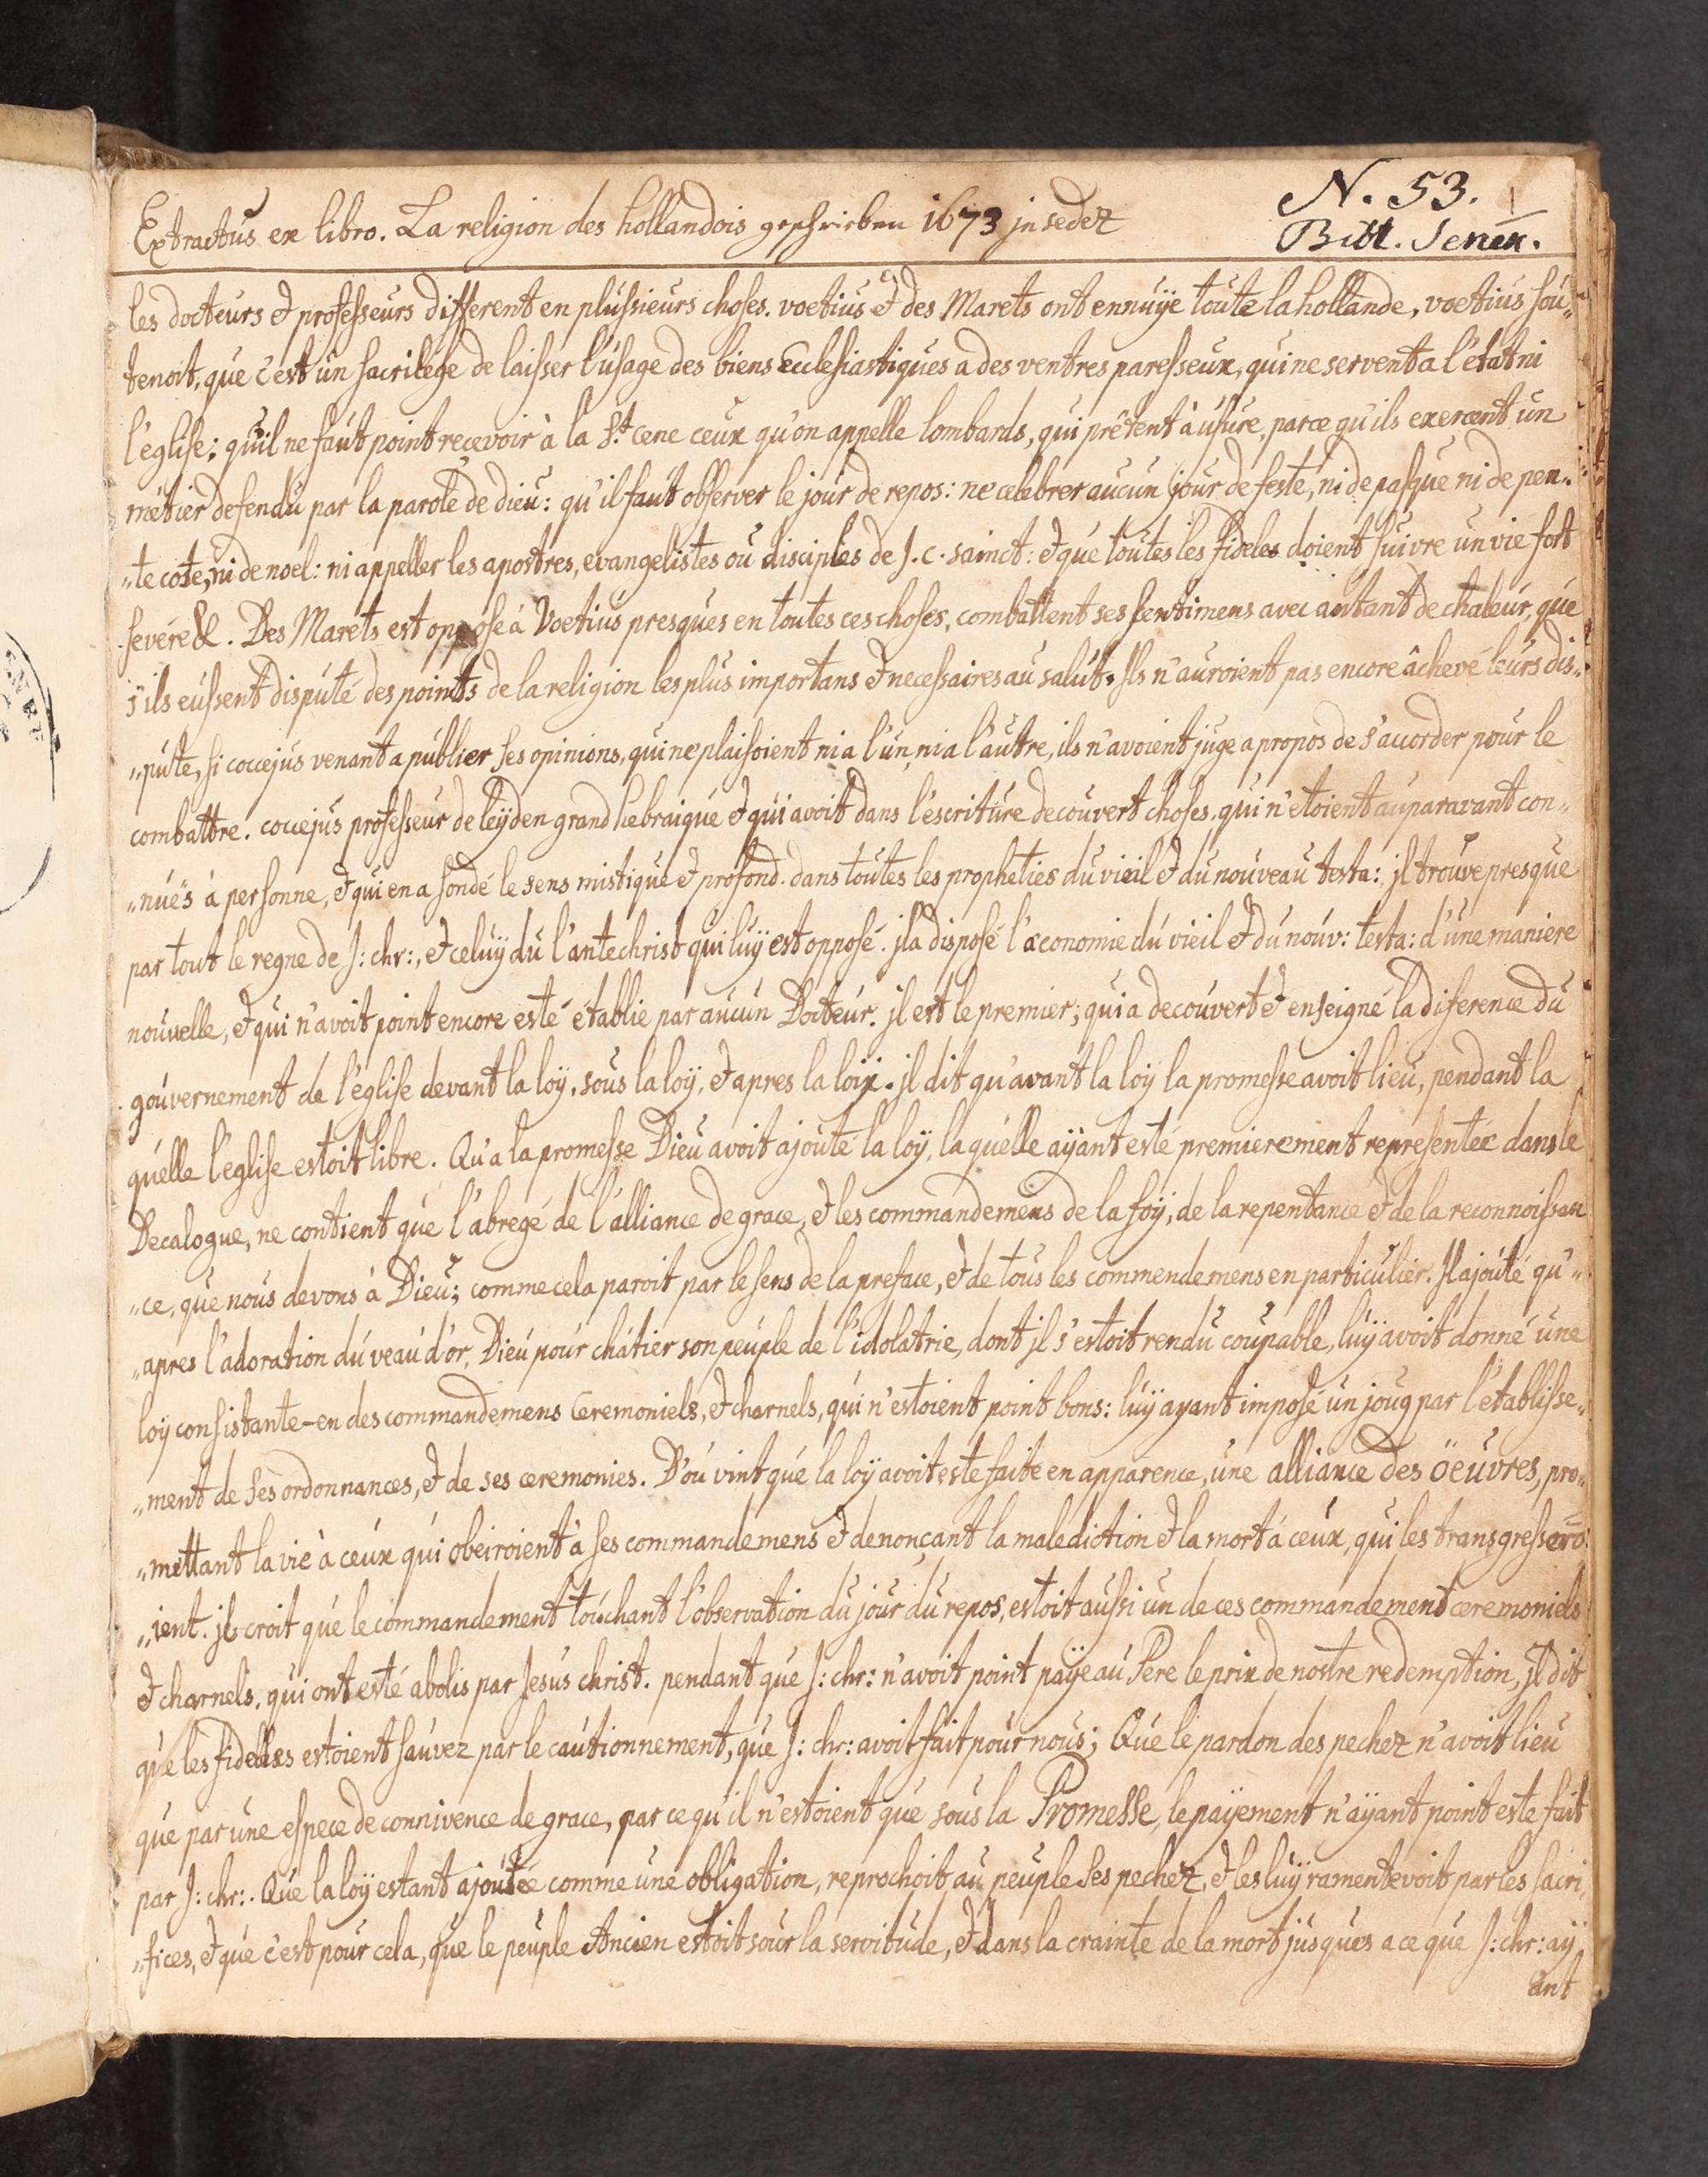 N. 53. 1
Extractus ex libro. La religion des hollandois geschrieben 1673 in sedez
Bibl. Senen.
les docteurs et professeurs different en plussieurs choses. voetius et des Marets ont ennuÿe toute la hollande, voetius sou„
tenoit, que c'est un sacrilege de laisser l'usage des biens Ecclesiastiques a des ventres paresseux, qui ne servent a l'état ni
l'eglise; qu'il ne faut point recevoir à la St. cene ceux qu'on appelle lombards, qui prêtent à usure, parce qu'ils exercent un
métier defendu par la parole de dieu: qu'il faut observer le jour de repos: ne celebrer aucun jour de feste, ni de pasque ni de pen„
„tecoste, ni de noel: ni appeller les apostres, evangelistes ou disciples de J. C. sainct: et que toutes les fideles doient suivre un vie fort
severe &. Des Marets est opposé à Voetius presques en toutes ces choses, combattent ses sentimens avec autant de chaleur, que
s'ils eussent disputé des points de la religion les plus importans et necessaires au salut. Ils n'auroient pas encore âchevé leurs dis„
„pute, si coccejus venant a publier ses opinions, qui ne plaisoient ni a l'un, ni a l'autre, ils n'avoient juge a propos de s'accorder pour le
combattre. coccejus professeur de leÿden grand hebraique et qui avoit dans l'escriture decouvert choses, qui n'etoient auparavant con„
„nuës à personne, et qui en a fondé le sens mistique et profond. dans toutes les propheties du vieil et du nouveau testa: il trouve presque
par tout le regne de J: chr:, et celuÿ du l'antechrist qui luÿ est opposé. il a disposé l'œconomie du vieil et du nouv: testa: d'une maniere
nouvelle, et qui n'avoit point encore esté établie par aucun Docteur. il est le premier; qui a decouvert et enseigné la diference du
gouvernement de l'eglise devant la loÿ, sous la loÿ, et apres la loix. il dit qu'avant la loÿ la promesse avoit lieu, pendant la
quélle l'eglise estoit libre. Qu'a la promesse Dieu avoit ajouté la loÿ, la quélle aÿant esté premierement representée dans le
Decalogue, ne contient que l'abregé de l'alliance de grace, et les commandemens de la foÿ, de la repentance et de la reconnoissan
„ce, que nous devons à Dieu; comme cela paroit par le sens de la preface, et de tous les commendemens en particulier. Il ajoúté qu'„
„apres l'adoration du veau d'or, Dieu pour châtier son peuple de l'idolatrie, dont il s'estoit rendu coupable, luÿ avoit donné une
loÿ consistante-en des commandemens Ceremoniels, et charnels, qui n'estoient point bons: luÿ ayant imposé un joug par l'etablisse„
„ment de ses ordonnances, et de ses ceremonies. D'ou vint que la loÿ avoit esté faite en apparence, une alliance des öeuvres, pro„
„mettant la vie à ceux qui obeiroient à ses commandemens et denonçant la malediction et la mort à ceux, qui les transgressero:
„ient. il croit que le commandement touchant l'observation du jour du repos, estoit aussi un de ces commandement ceremoniels
et charnels, qui ont esté abolis par Jesus christ. pendant que J: chr: n'avoit point paÿe au Pere le prix de nostre redemption, il dit
que les fidelles estoient sauvez par le cautionnement, que J: chr: avoit fait pour nous; Que le pardon des pechez n'avoit lieu
que par une espece de connivence de grace, par ce qu'il n'estoient que sous la Promesse, le paÿement n'aÿant point este fait
par J: chr:. Que la loÿ estant ajoutée comme une obligation, reprochoit au peuple ses pechez, et les luÿ ramentevoit par les sacri„
„fices, et que c'est pour cela, que le peuple Ancien estoit sour la servitude, et dans la crainte de la mort jusques a ce que J: chr: aÿ
ant